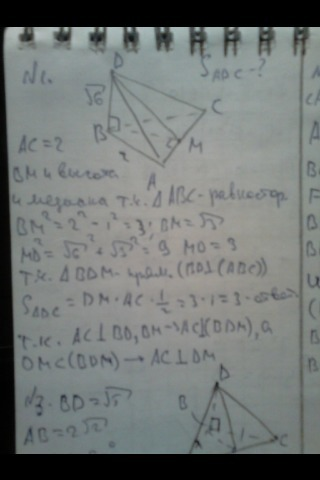 №1.
D
S_ADC - ?
√6
B
C
M
2
A
AC = 2
BM и высота
и медиана т.к. △ABC - равностор.
BM² = 2² - 1² = 3; BM = √3
MD² = √6² + √3² = 9 MD = 3
т.к. △BDM - прям. (BD⊥(ABC))
S_ADC = DM · AC · 1/2 = 3 · 1 = 3 - ответ
т.к. AC⊥BD, BM → AC⊥(BDM), а
DM⊂(BDM) → AC⊥DM
№3. BD = √5
D
B
C
AB = 2√2